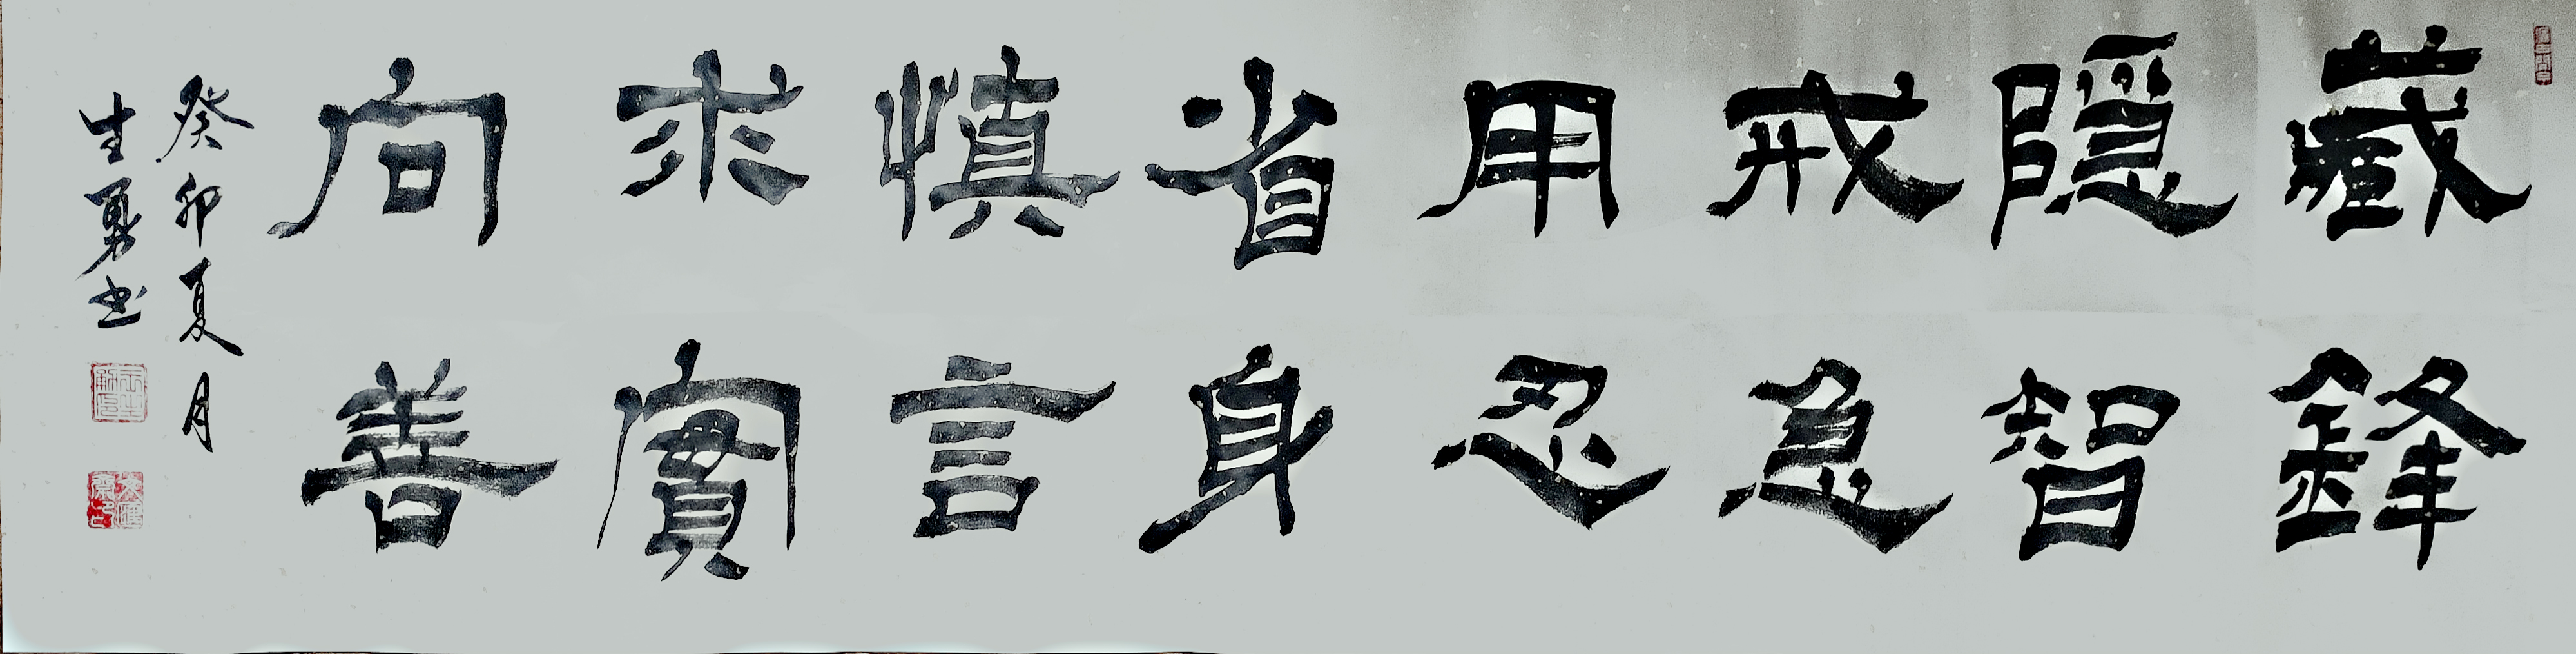 藏鋒
隱智
戒急
用忍
省身
慎言
求實
向善
癸卯夏月
生勇书